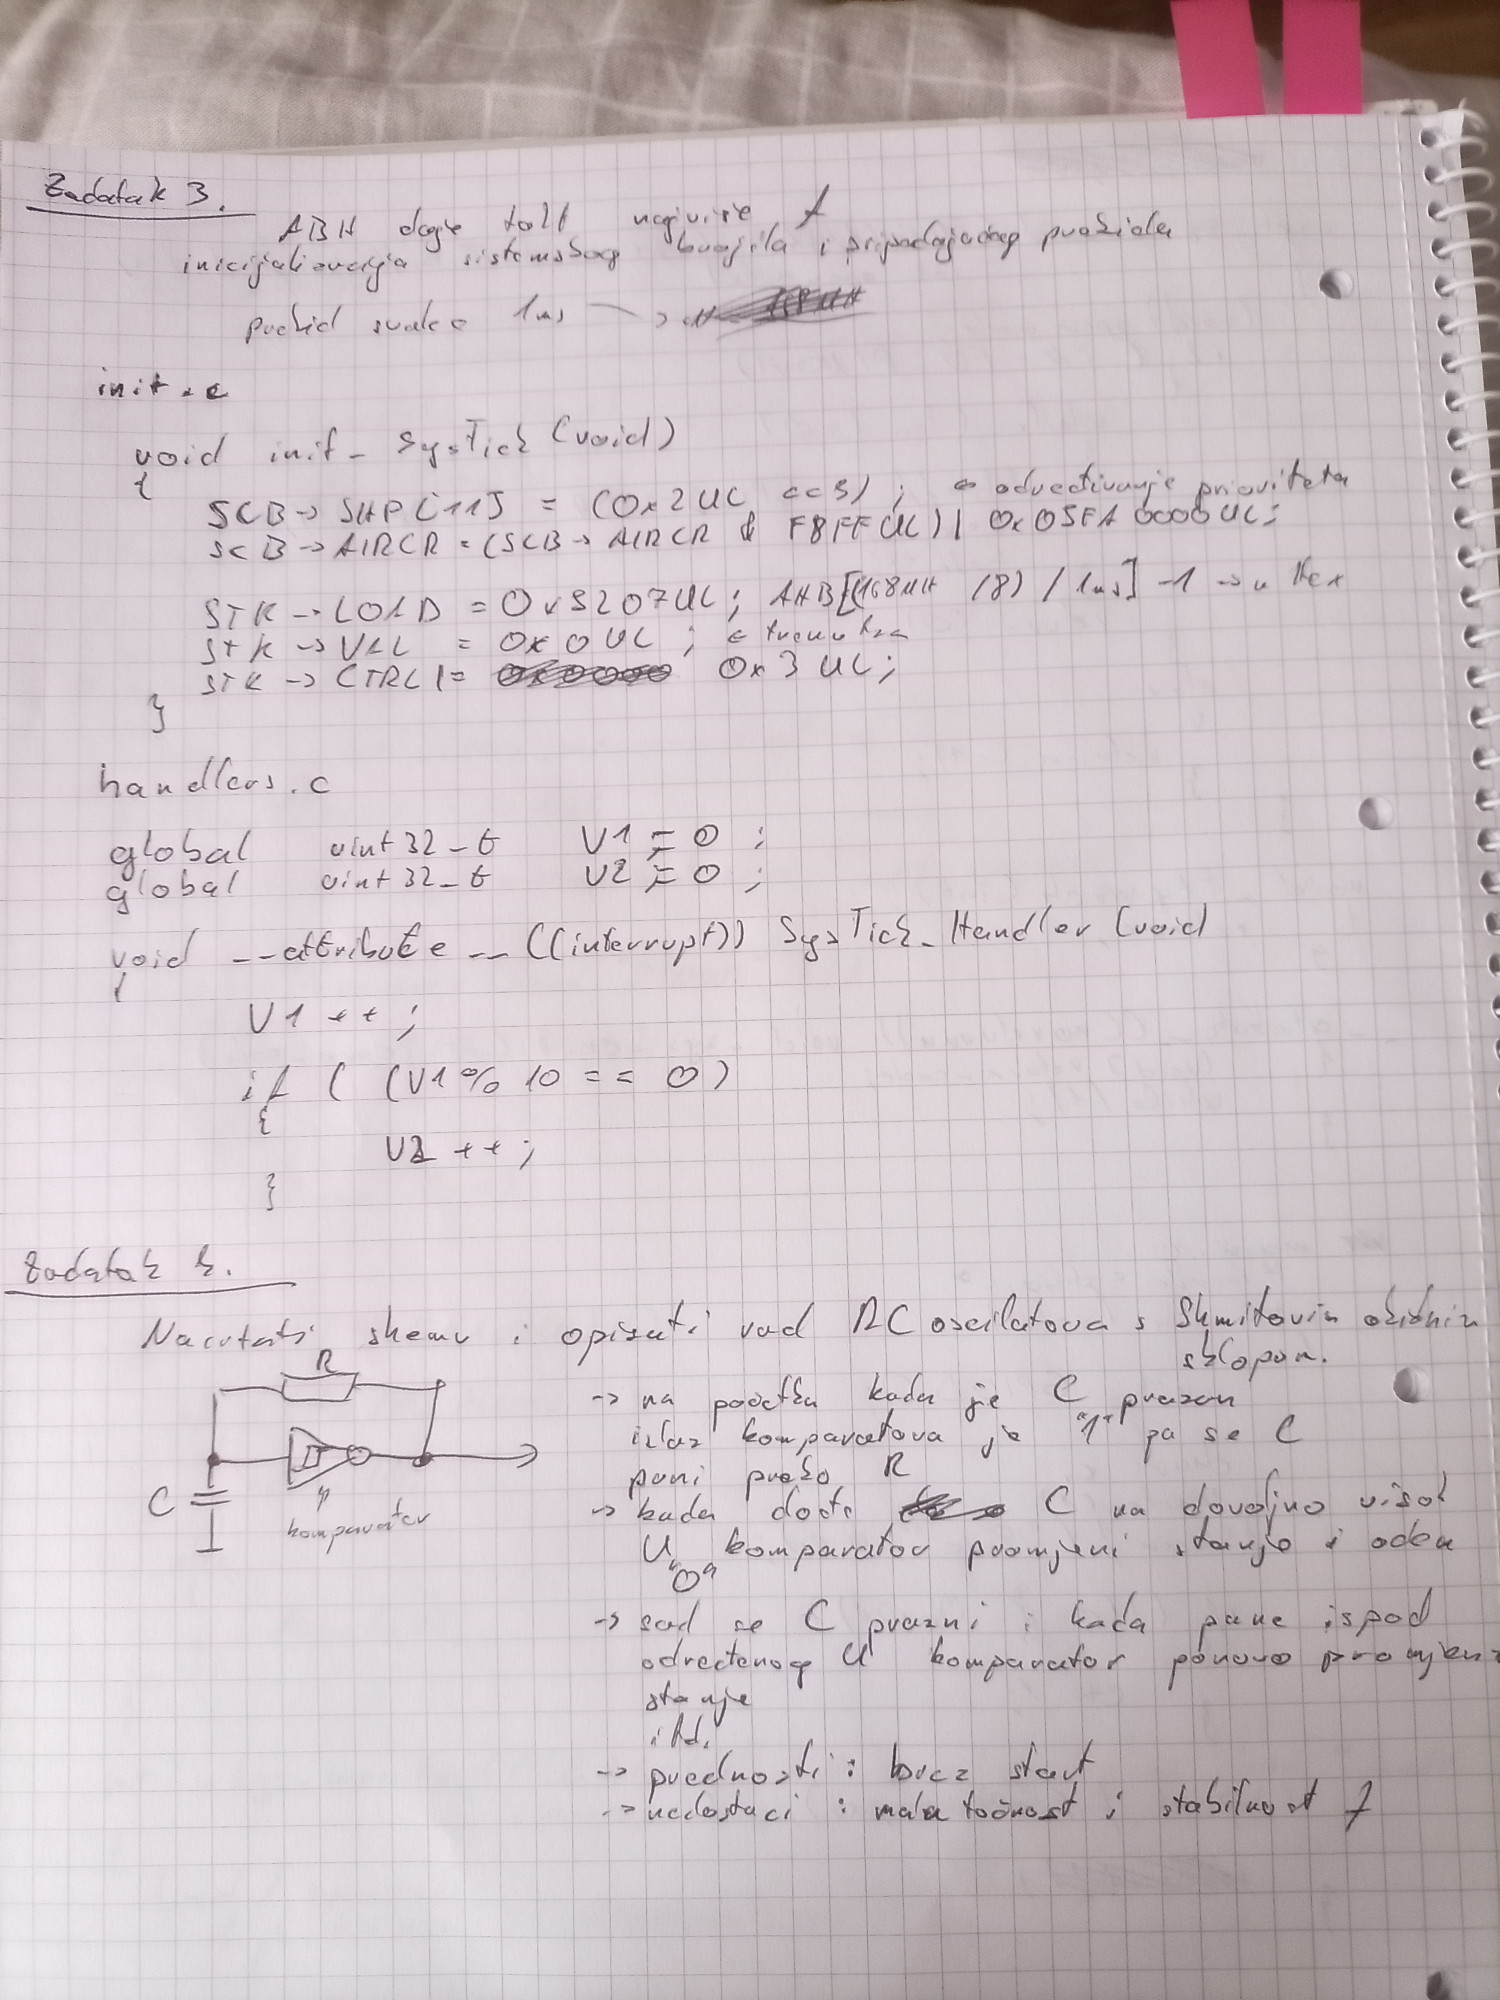 Zadatak 3.
AHB daje takt najviše f
inicijalizacija sistemskog brojila i pripadajućeg prekida
prekid svake 1ms →
init.c
void init_SysTick (void)
{
SCB → SHP[11] = (0x2UL << 5) ; ← određivanje prioriteta
SCB → AIRCR = (SCB → AIRCR & F8FFUL) | 0x05FA0000UL;
STK → LOAD = 0x5207UL; AHB[(168MH /8) / 1ms] -1 → u Hex
STK → VAL = 0x0UL ; ← trenutna
STK → CTRL |= 0x3UL;
}
handlers.c
global uint32_t V1 = 0 ;
global uint32_t V2 = 0 ;
void __attribute__ ((interrupt)) SysTick_Handler (void
{
V1 ++ ;
if ( (V1 % 10 == 0)
{
V2 ++ ;
}
Zadatak 4.
Nacrtati shemu i opisati rad RC oscilatora s Shmitovim okidnim
sklopom.
R
C
komparator
→ na početku kada je C prazan
izlaz komparatora je "1" pa se C
puni preko R
→ kada dođe C na dovoljno visok
U komparator promjeni stanje i ode u
"0"
→ sad se C prazni i kada pane ispod
određenog U komparator ponovo promjeni
stanje
itd.
→ prednosti : brz start
→ nedostaci : mala točnost i stabilnost f